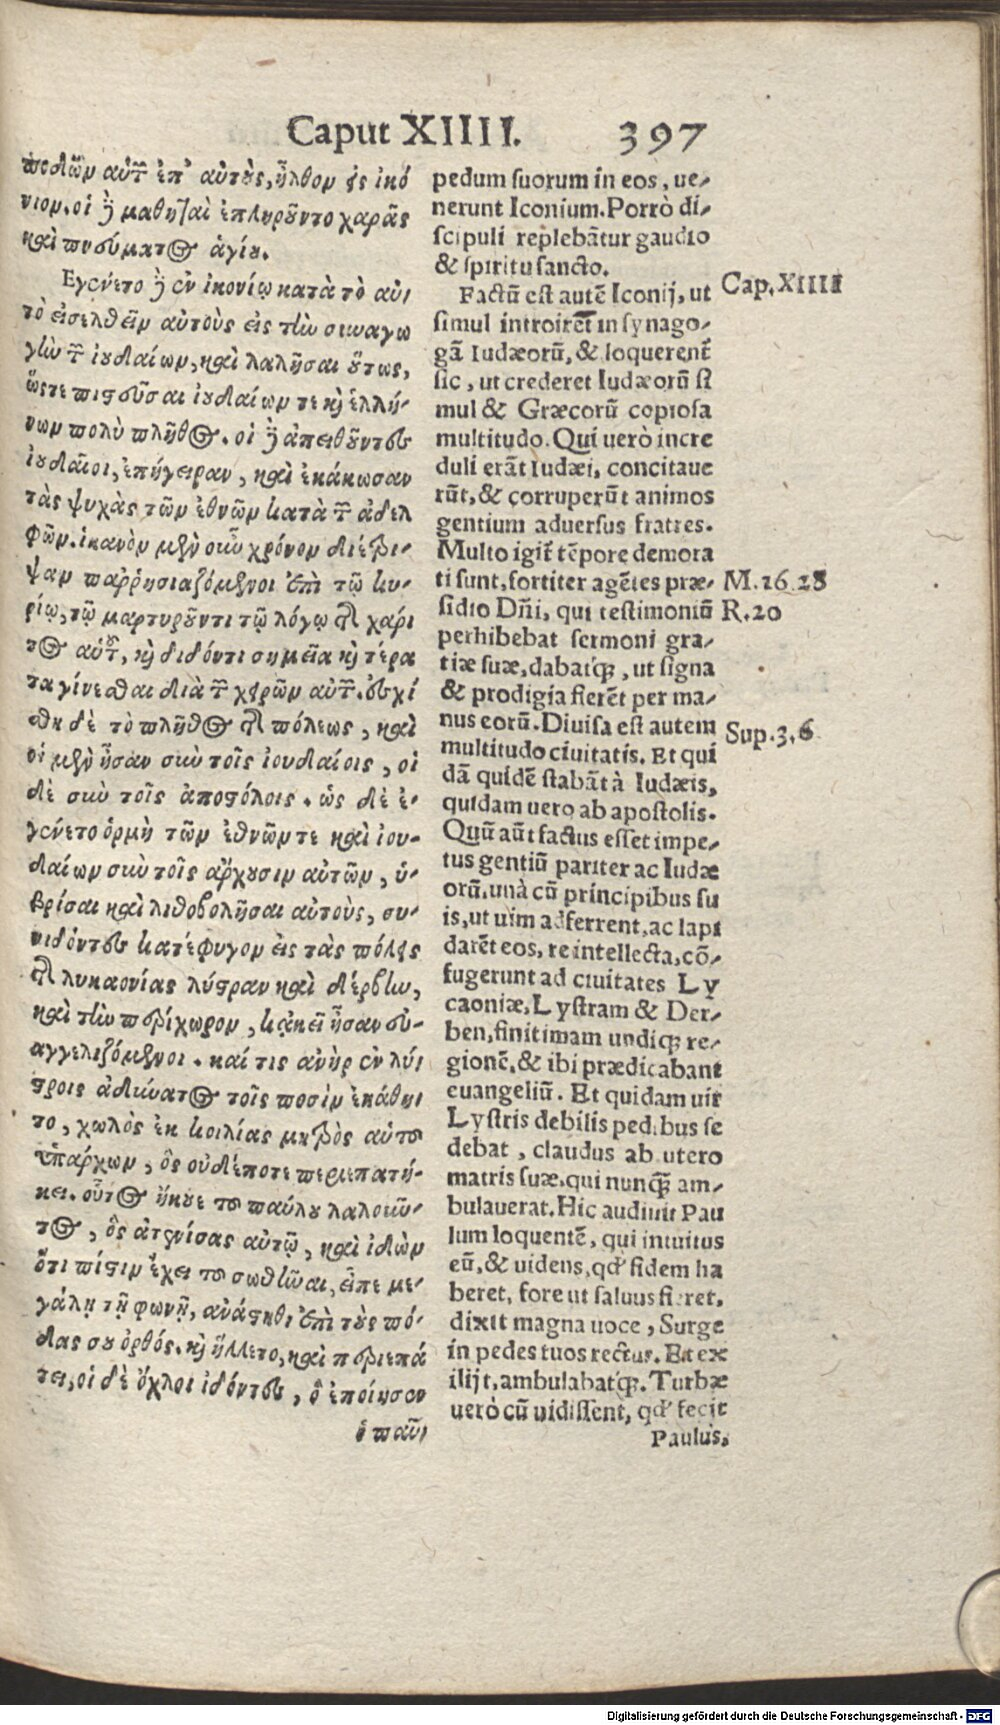 Caput XIIII. 397
ποδῶν αὐτῶν ἐπ' αὐτοὺς, ἦλθον εἰς ἰκό
νιον. οἱ δὲ μαθηταὶ ἐπληροῦντο χαρᾶς
καὶ πνεύματος ἁγίου.
Εγένετο δὲ ἐν ἰκονίῳ κατὰ τὸ αὐ-
τὸ εἰσελθεῖν αὐτοὺς εἰς τὴν συναγω
γὴν τῶν ἰουδαίων, καὶ λαλῆσαι οὕτως,
ὥστε πιστεῦσαι ἰουδαίων τε καὶ ἑλλή-
νων πολὺ πλῆθος. οἱ δὲ ἀπειθοῦντες
ἰουδαῖοι, ἐπήγειραν, καὶ ἐκάκωσαν
τὰς ψυχὰς τῶν ἐθνῶν κατὰ τῶν ἀδελ
φῶν. ἱκανὸν μὲν οὖν χρόνον διέτρι-
ψαν παῤῥησιαζόμενοι ἐπὶ τῷ κυ-
ρίῳ, τῷ μαρτυροῦντι τῷ λόγῳ τῆς χάρι
τος αὐτοῦ, καὶ διδόντι σημεῖα καὶ τέρα
τα γίνεσθαι διὰ τῶν χειρῶν αὐτῶν. ἐσχί
σθη δὲ τὸ πλῆθος τῆς πόλεως, καὶ
οἱ μὲν ἦσαν σὺν τοῖς ἰουδαίοις, οἱ
δὲ σὺν τοῖς ἀποστόλοις. ὡς δὲ ἐ-
γένετο ὁρμὴ τῶν ἐθνῶν τε καὶ ἰου-
δαίων σὺν τοῖς ἄρχουσιν αὐτῶν, ὑ-
βρίσαι καὶ λιθοβολῆσαι αὐτοὺς, συ-
νιδόντες κατέφυγον εἰς τὰς πόλεις
τῆς λυκαονίας λύστραν καὶ δέρβην,
καὶ τὴν περίχωρον, κᾀκεῖ ἦσαν εὐ-
αγγελιζόμενοι. καί τις ἀνὴρ ἐν λύ-
στροις ἀδύνατος τοῖς ποσὶν ἐκάθη
το, χωλὸς ἐκ κοιλίας μητρὸς αὐτοῦ
ὑπάρχων, ὃς οὐδέποτε περιεπατή-
κει. οὗτος ἤκουε τοῦ παύλου λαλοῦν-
τος, ὃς ἀτενίσας αὐτῷ, καὶ ἰδὼν
ὅτι πίστιν ἔχει τοῦ σωθῆναι, εἶπε με-
γάλῃ τῇ φωνῇ, ἀνάστηθι ἐπὶ τοὺς πό-
δας σου ὀρθός. καὶ ἥλλετο, καὶ περιεπά
τει, οἱ δὲ ὄχλοι ἰδόντες, ὃ ἐποίησεν
ὁ παῦ-
pedum suorum in eos, ue-
nerunt Iconium. Porrò di-
scipuli replebãtur gaudio
& spiritu sancto.
Factũ est autẽ Iconij, ut
simul introirẽt in synago-
gã Iudæorũ, & loquerent̃
sic, ut crederet Iudæorũ si
mul & Græcorũ copiosa
multitudo. Qui uerò incre
duli erãt Iudæi, concitaue
rũt, & corruperũt animos
gentium aduersus fratres.
Multo igit̃ tẽpore demora
ti sunt, fortiter agẽtes præ-
sidio Dñi, qui testimoniũ
perhibebat sermoni gra-
tiæ suæ, dabatq́;, ut signa
& prodigia fierẽt per ma-
nus eorũ. Diuisa est autem
multitudo ciuitatis. Et qui
dã quidẽ stabãt à Iudæis,
quidam uero ab apostolis.
Quũ aũt factus esset impe-
tus gentiũ pariter ac Iudæ
orũ, unà cũ principibus su
is, ut uim adferrent, ac lapi
darẽt eos, re intellecta, cõ-
fugerunt ad ciuitates Ly
caoniæ, Lystram & Der-
ben, finitimam undiq; re-
gionẽ, & ibi prædicabant
euangeliũ. Et quidam uir
Lystris debilis pedibus se
debat, claudus ab utero
matris suæ, qui nunq̃ am-
bulauerat. Hic audiuit Pau
lum loquentẽ, qui intuitus
eũ, & uidens, qd' fidem ha
beret, fore ut saluus fieret,
dixit magna uoce, Surge
in pedes tuos rectus. Et ex
ilijt, ambulabatq́;. Turbæ
uerò cũ uidissent, qd' fecit
Paulus,
Cap. XIIII
M. 16. 28
R. 20
Sup. 3. 6
Digitalisierung gefördert durch die Deutsche Forschungsgemeinschaft - DFG